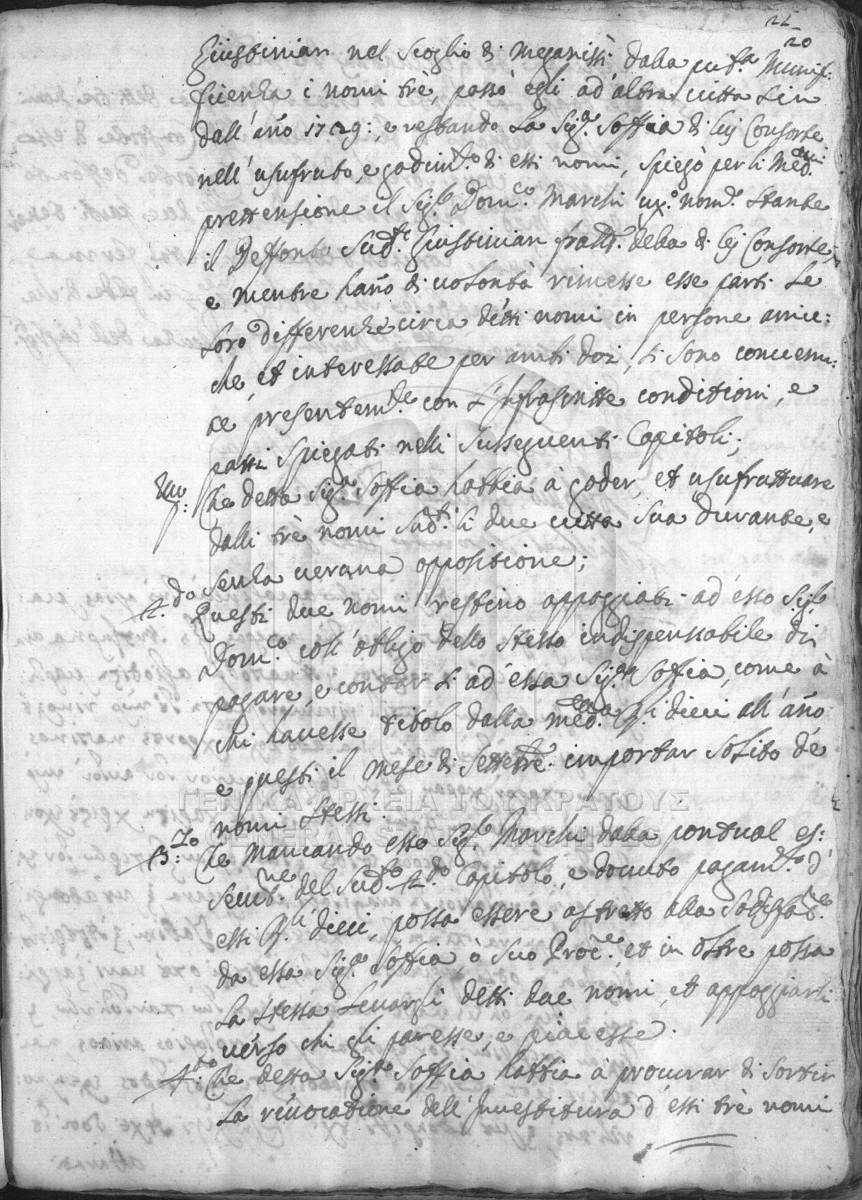 22
20
Giustinian nel scoglio di Meganissi dalla pub.ca Munifi:
ficienza i nomi trè, passò egli ad'altra vitta sin
dall'año 1729: e restando la Sig.ra Soffia di lui Consorte
nell'usufruto, e godim.to di essi nomi, spiegò per li med.mi
prettensione il Sig.r Dom.co Marchi nom.e stante
il Deffonto Sud.to Giustinian fratt.o della di lui Consorte
e mentre hano di volontà rimesse esse parti le
loro differenze circa detti nomi in persone amice:
che, et interessate per ambi doi, si sono convenu:
te presentem.te con l'infrascritte conditioni, e
patti spiegati nelli susseguenti Capitoli;
P.mo 1: Che detta Sig.ra Soffia habbia à goder, et usufruttuare
dalli trè nomi sud.ti li due vitta sua durante, e
senza veruna oppositione;
2.do Questi due nomi restino appoggiati ad'esso Sig.r
Dom.co coll'obligo dello stesso indispensabile di
pagare, e contar li ad'essa Sig.ra Soffia, come à
chi havesse titolo dalla med.ma dieci all'año
e questi il mese di Settem.re importar solito de
nomi stessi.
3:zo Che mancando esso Sig.r Marchi dalla pontual es:
secut.ne del Sud.to 2.do Capitolo, e dovuto pagam.to d'
essi dieci, possa essere astretto alla sodisfat.ne
da essa Sig.ra Soffia ò suo Proc.re et in oltre possa
la stessa levargli detti due nomi, et appoggiarli
verso chi gli paresse, e piacesse.
4:to Che detta Sig.ra Soffia habbia à procurar di sortir
la rivocatione dell'Investitura d'essi trè nomi
ΓΕΝΙΚΑ ΑΡΧΕΙΑ ΤΟΥ ΚΡΑΤΟΥΣ
GENERAL STATE